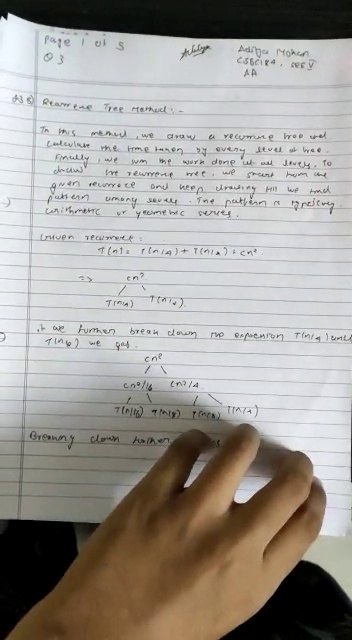 Page 1 of 3
Q 3
Aditya Mohan
CSE
AA
Recurrence Tree Method:-
In this method, we draw a recurrence tree and
calculate the time taken by every level of tree.
Finally, we sum the work done at all levels. To
draw the recurrence tree, we start from the
given recurrence and keep drawing till we find
pattern among levels. The pattern is typically
arithmetic or geometric series.
Given recurrence:
T(n) = T(n/4) + T(n/2) + cn²
=> cn²
T(n/4) T(n/2)
If we further break down the expression T(n/4) and
we get.
cn²
cn²/16 cn²/4
T(n/16) T(n/8) T(n/8) T(n/4)
Breaking down further